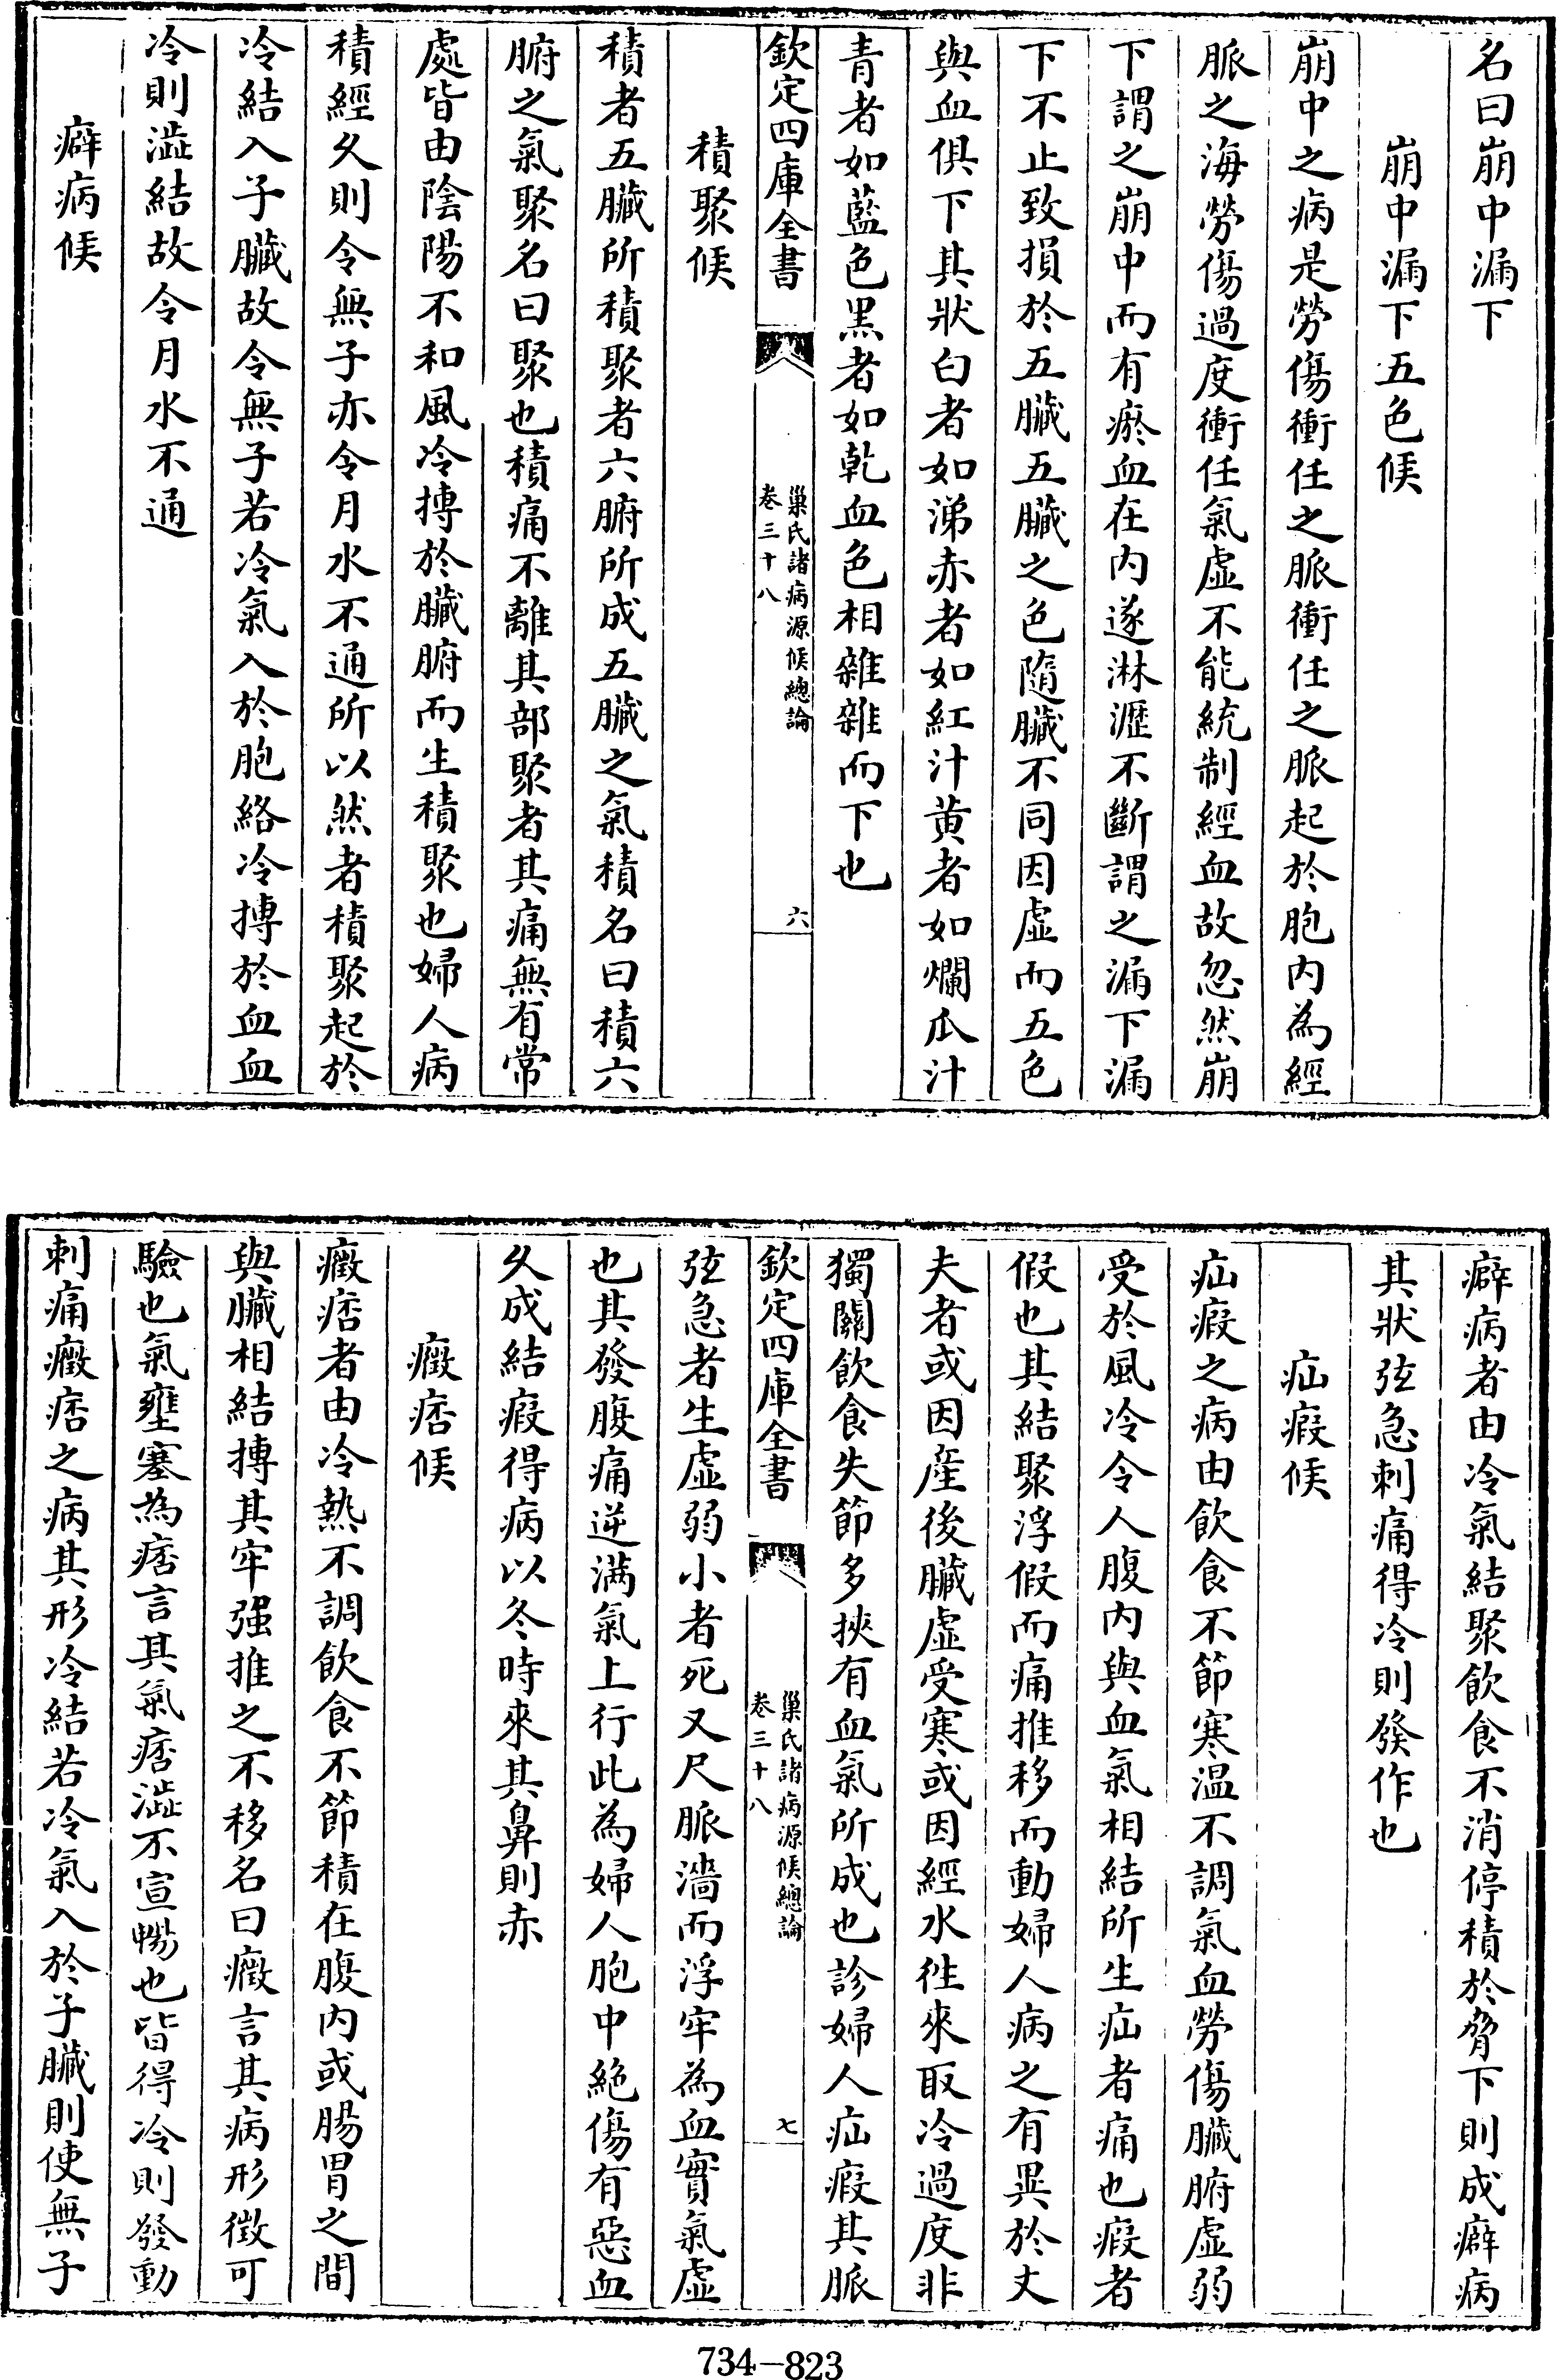 名曰崩中漏下
崩中漏下五色候
崩中之病是勞傷衝任之脈衝任之脈起於胞內為經
脈之海勞傷過度衝任氣虛不能統制經血故忽然崩
下謂之崩中而有瘀血在內遂淋瀝不斷謂之漏下漏
下不止致損於五臟五臟之色隨臟不同因虛而五色
與血俱下其狀白者如涕赤者如紅汁黃者如爛瓜汁
青者如藍色黑者如乾血色相雜雜而下也
欽定四庫全書
巢氏諸病源候總論
卷三十八
六
積聚候
積者五臟所積聚者六腑所成五臟之氣積名曰積六
腑之氣聚名曰聚也積痛不離其部聚者其痛無有常
處皆由陰陽不和風冷搏於臟腑而生積聚也婦人病
積經久則令無子亦令月水不通所以然者積聚起於
冷結入子臟故令無子若冷氣入於胞絡冷搏於血血
冷則澁結故令月水不通
癖病候
癖病者由冷氣結聚飲食不消停積於脅下則成癖病
其狀弦急刺痛得冷則發作也
疝瘕候
疝瘕之病由飲食不節寒溫不調氣血勞傷臟腑虛弱
受於風冷令人腹內與血氣相結所生疝者痛也瘕者
假也其結聚浮假而痛推移而動婦人病之有異於丈
夫者或因產後臟虛受寒或因經水徃來取冷過度非
獨關飲食失節多挾有血氣所成也診婦人疝瘕其脈
欽定四庫全書
巢氏諸病源候總論
卷三十八
七
弦急者生虛弱小者死又尺脈濇而浮牢為血實氣虛
也其發腹痛逆滿氣上行此為婦人胞中絕傷有惡血
久成結瘕得病以冬時來其鼻則赤
癥痞候
癥痞者由冷熱不調飲食不節積在腹內或腸胃之間
與臟相結搏其牢强推之不移名曰癥言其病形徵可
驗也氣壅塞為痞言其氣痞澁不宣暢也皆得冷則發動
刺痛癥痞之病其形冷結若冷氣入於子臟則使無子
734-823